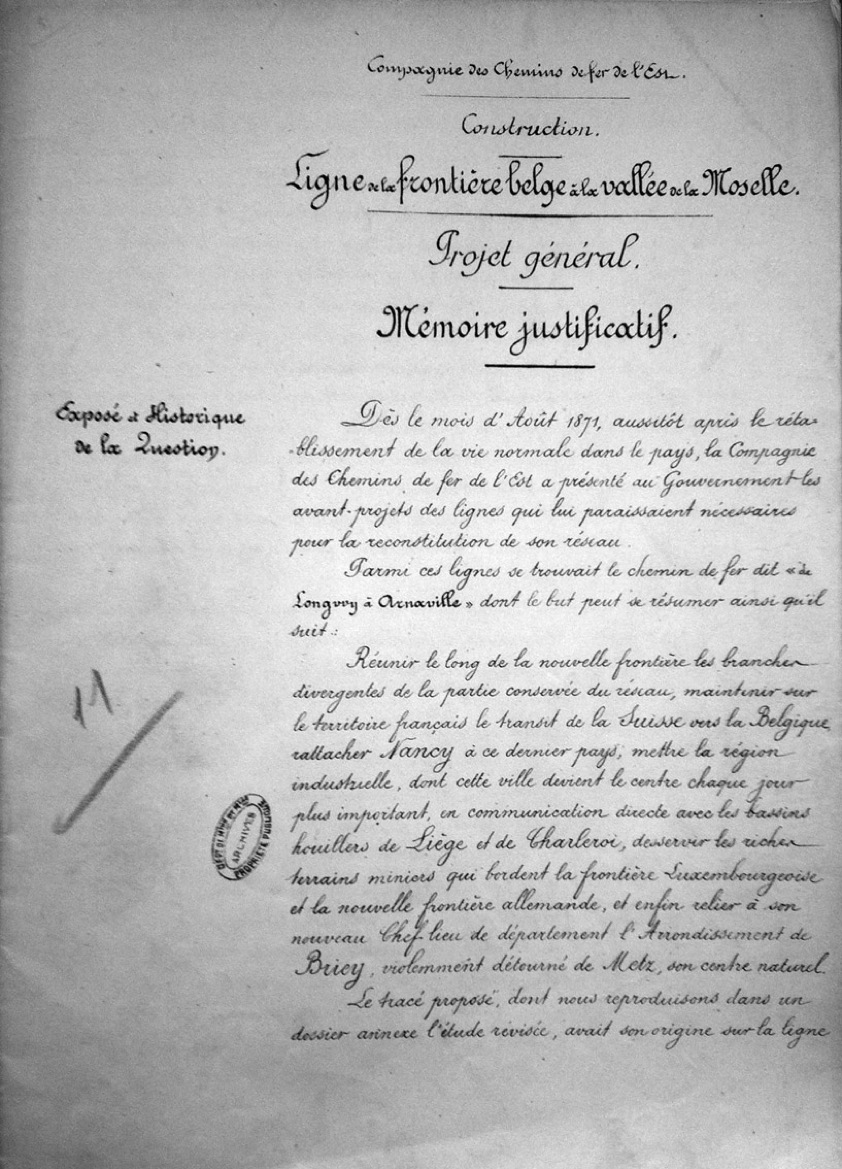 Compagnie des Chemins de fer de l'Est.
Construction.
Ligne de la frontière belge à la vallée de la Moselle.
Projet général.
Mémoire justificatif.
Exposé et Historique
de la Question.
Dès le mois d'Août 1871, aussitôt après le réta-
-blissement de la vie normale dans le pays, la Compagnie
des Chemins de fer de l'Est a présenté au Gouvernement les
avant-projets des lignes qui lui paraissaient nécessaires
pour la reconstitution de son réseau.
Parmi ces lignes se trouvait le chemin de fer dit « de
Longwy à Arnaville » dont le but peut se résumer ainsi qu'il
suit :
Réunir le long de la nouvelle frontière les branches
divergentes de la partie conservée du réseau, maintenir sur
le territoire français le transit de la Suisse vers la Belgique,
rattacher Nancy à ce dernier pays, mettre la région
industrielle, dont cette ville devient le centre chaque jour
plus important, en communication directe avec les bassins
houillers de Liège et de Charleroi, desservir les riches
terrains miniers qui bordent la frontière Luxembourgeoise
et la nouvelle frontière allemande, et enfin relier à son
nouveau Chef-lieu de département l'Arrondissement de
Briey, violemment détourné de Metz, son centre naturel.
Le tracé proposé, dont nous reproduisons dans un
dossier annexe l'étude révisée, avait son origine sur la ligne
11
DÉPT DE MTHE ET MLLE
ARCHIVES
PROPRIÉTÉ PUBLIQUE